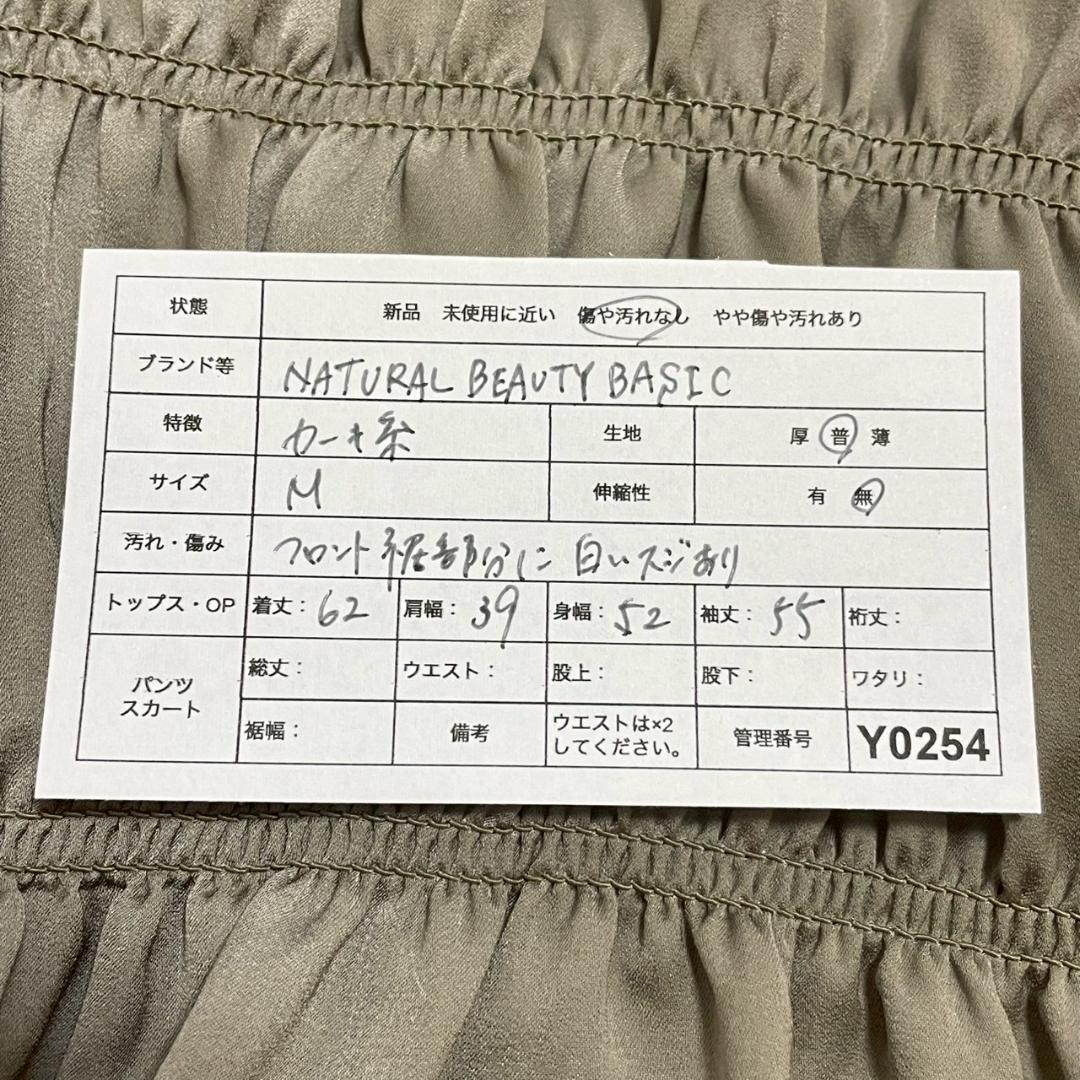 状態 新品 未使用に近い 傷や汚れなし やや傷や汚れあり
ブランド等 NATURAL BEAUTY BASIC
特徴 カーキ系 生地 厚 普 薄
サイズ M 伸縮性 有 無
汚れ・傷み フロント裾部分に白いスジあり
トップス・OP 着丈：62 肩幅：39 身幅：52 袖丈：55 裄丈：
パンツ
スカート
総丈： ウエスト： 股上： 股下： ワタリ：
裾幅： 備考 ウエストは×2
してください。 管理番号 Y0254